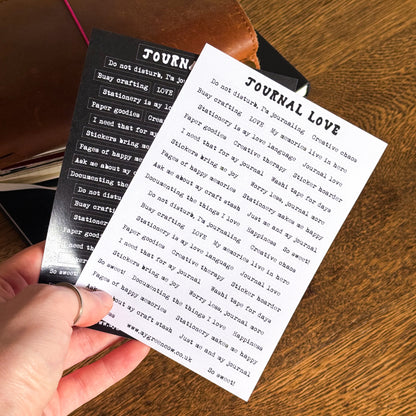 JOURNA
Do not disturb, I'm jou
Busy crafting LOVE
Stationery is my
Paper goodies
I need that for
Stickers bring
Ask me about my
Documenting the
Do not distu
Busy craf
Stationery
Paper good
I need
Sticke
So sweet!
JOURNAL LOVE
Do not disturb, I'm journaling Creative chaos
Busy crafting LOVE My memories live in hero
Stationery is my love language Journal love
Paper goodies Creative therapy Sticker hoarder
I need that for my journal Washi tape for days
Stickers bring me joy Worry less, journal more
Pages of happy memories Stationery makes me happy
Ask me about my craft stash Just me and my journal
Documenting the things I love Happiness So sweet!
Do not disturb, I'm journaling Creative chaos
Busy crafting LOVE My memories live in hero
Stationery is my love language Journal love
Paper goodies Creative therapy Sticker hoarder
I need that for my journal Washi tape for days
Stickers bring me joy Worry less, journal more
So sweet! Documenting the things I love Happiness
Pages of happy memories Stationery makes me happy
about my craft stash Just me and my journal
www.mygreencow.co.uk So sweet!